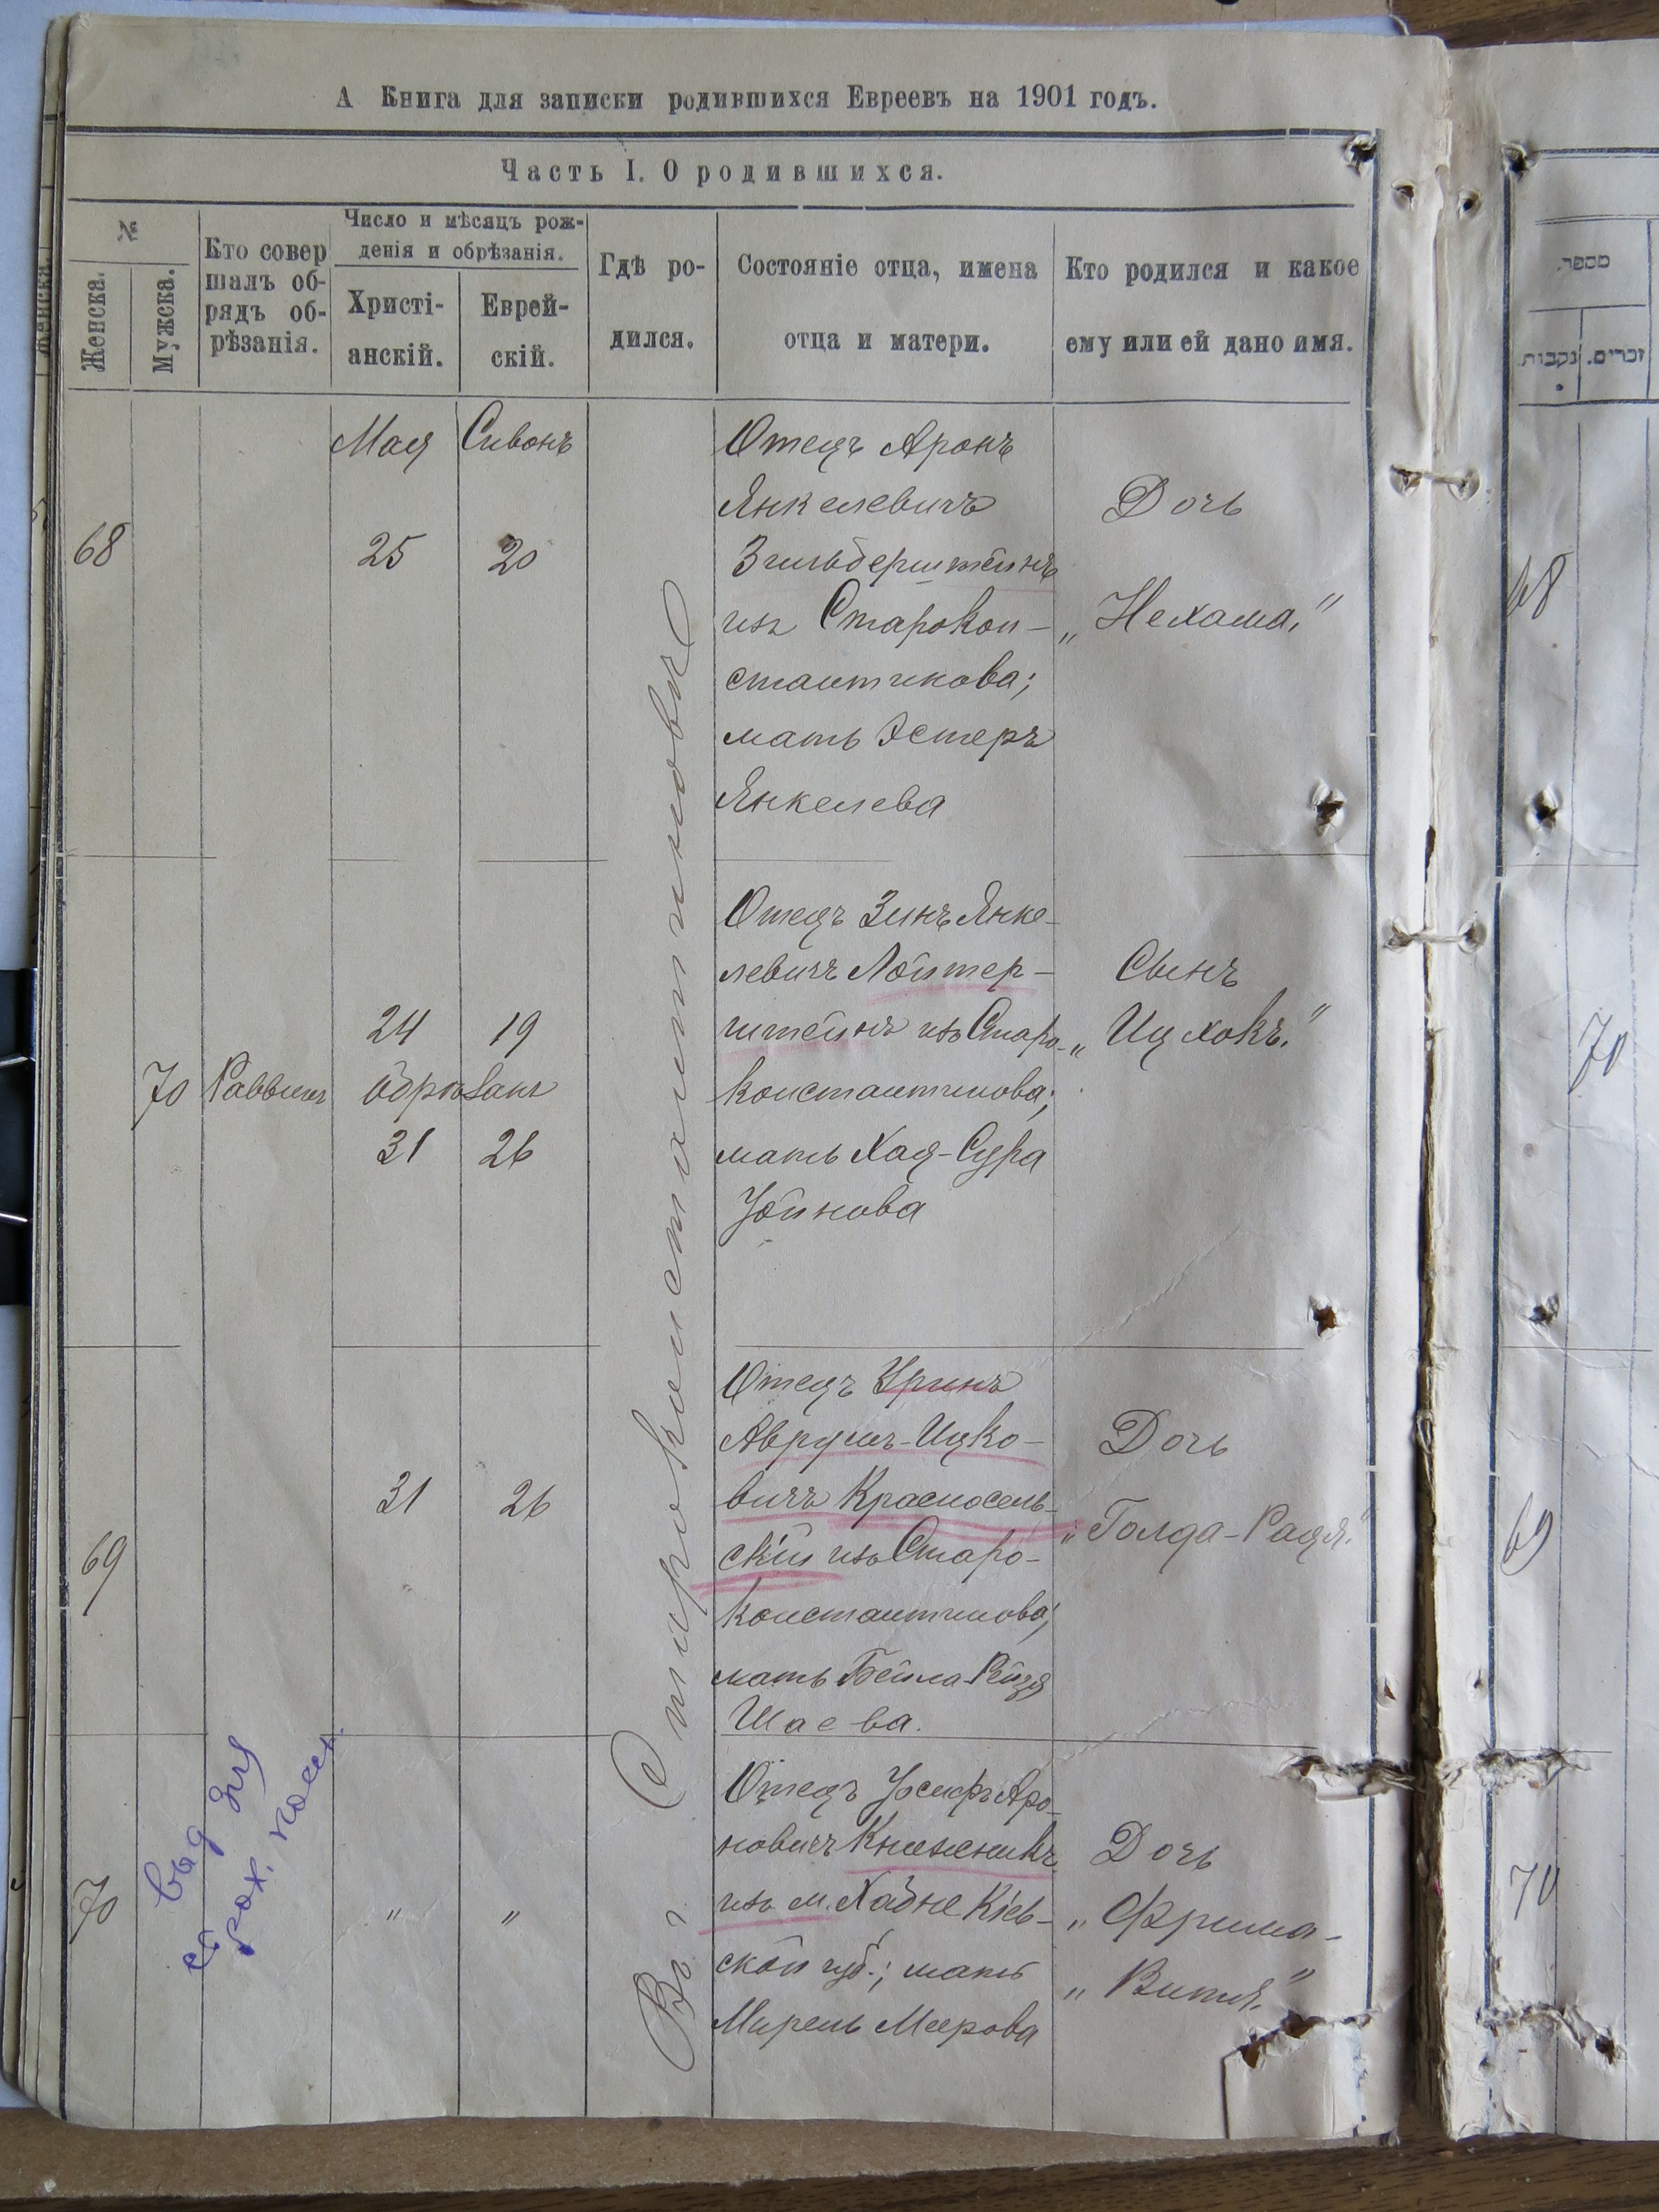 А Книга для записки родившихся Евреевъ на 1901 годъ.
Часть I. О родившихся.
№
Женска.
Мужска.
Кто совер
шалъ об-
рядъ об-
рѣзанія.
Число и мѣсяцъ рож-
денія и обрѣзанія.
Христі-
анскій.
Еврей-
скій.
Гдѣ ро-
дился.
Состояніе отца, имена
отца и матери.
Кто родился и какое
ему или ей дано имя.
Въ Староконстантиновѣ
68
Мая
25
Сивонъ
20
Отецъ Аронъ
Янкелевичъ
Зильберштейнъ
изъ Старокон-
стантинова;
мать Эстеръ
Янкелева
Дочь
„Нехама."
70
Раввинъ
24
19
Обрѣзанъ
31
26
Отецъ Зинъ Янке-
левичъ Лойтер-
штейнъ изъ Старо-
константинова;
мать Хая-Сура
Іойнова
Сынъ
„Ицхокъ."
69
31
26
Отецъ Уринъ
Аврумъ-Ицко-
вичъ Красносель-
скій изъ Старо-
константинова;
мать Бейла-Рейзя
Шаева.
Дочь
„Голда-Радя."
70
"
"
Отецъ Іосифъ Аро-
новичъ Княжникъ
изъ м. Хабне Кіев-
ской губ.; мать
Мирель Меерова
Дочь
„Фрима-
„Витя."
выд для
מספר.
נקבות.
זכרים.
68
70
69
70